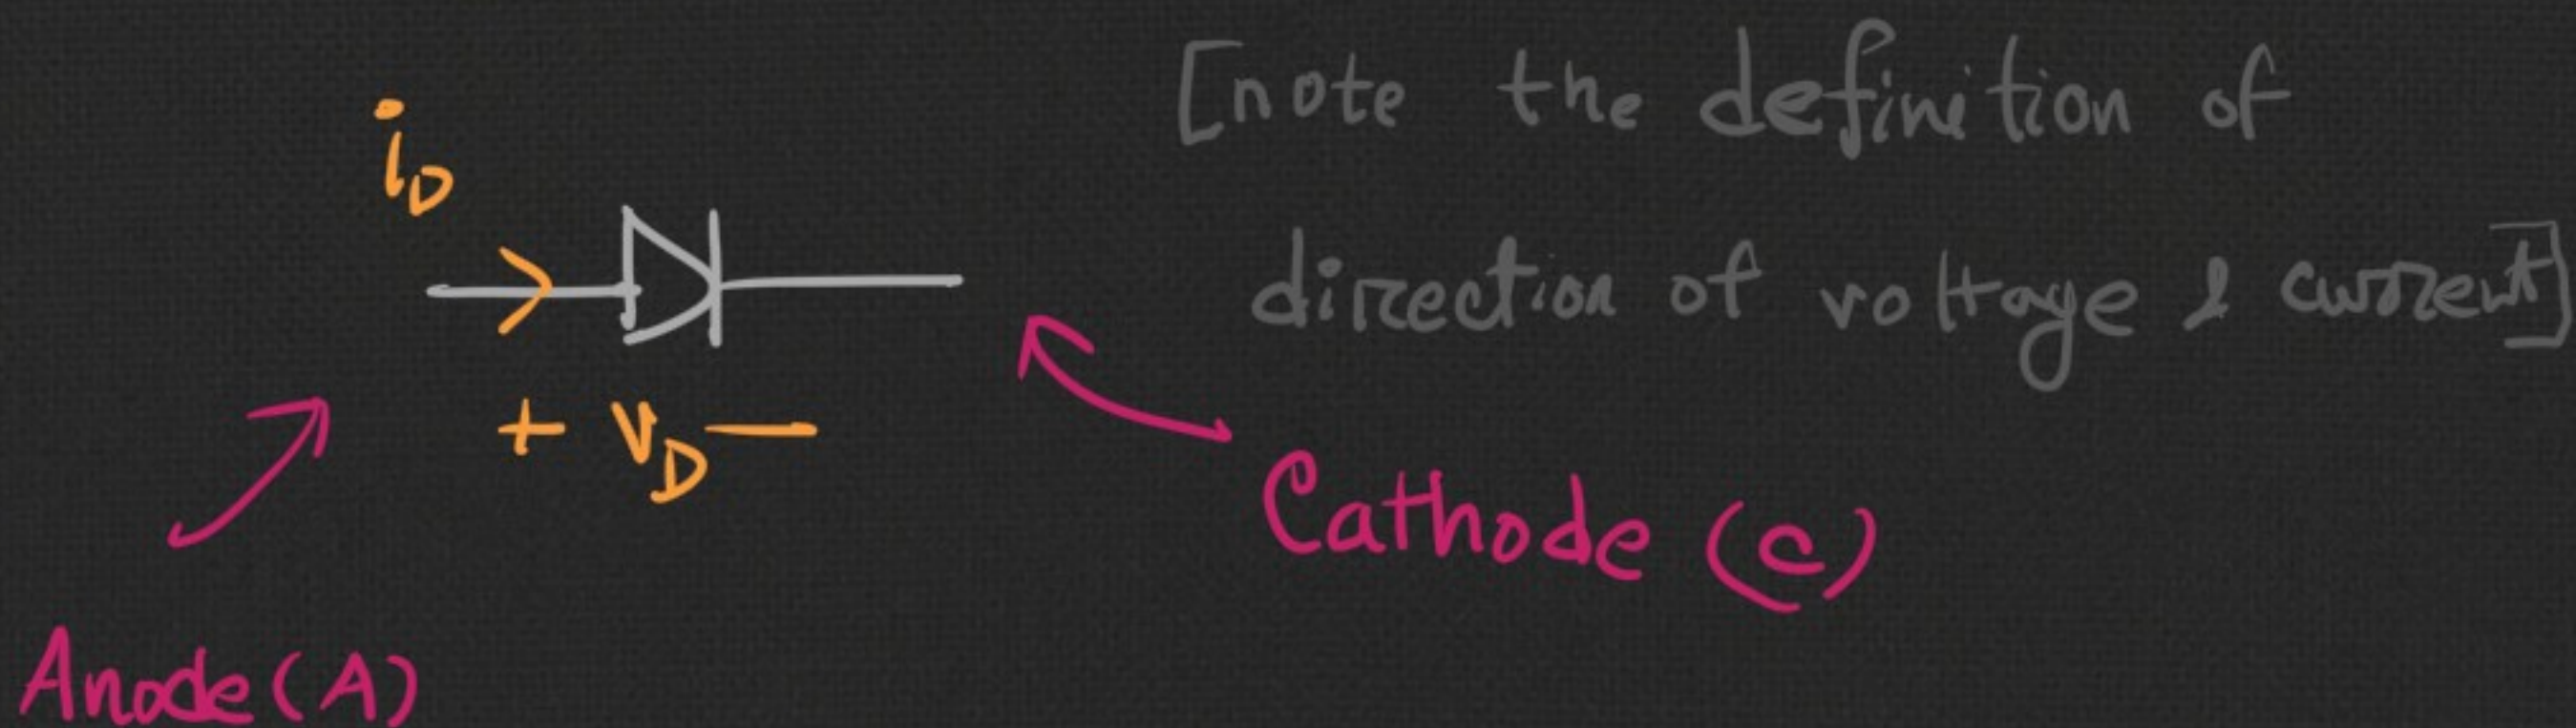 i_D
[note the definition of
direction of voltage & current]
+ v_D −
Cathode (C)
Anode (A)